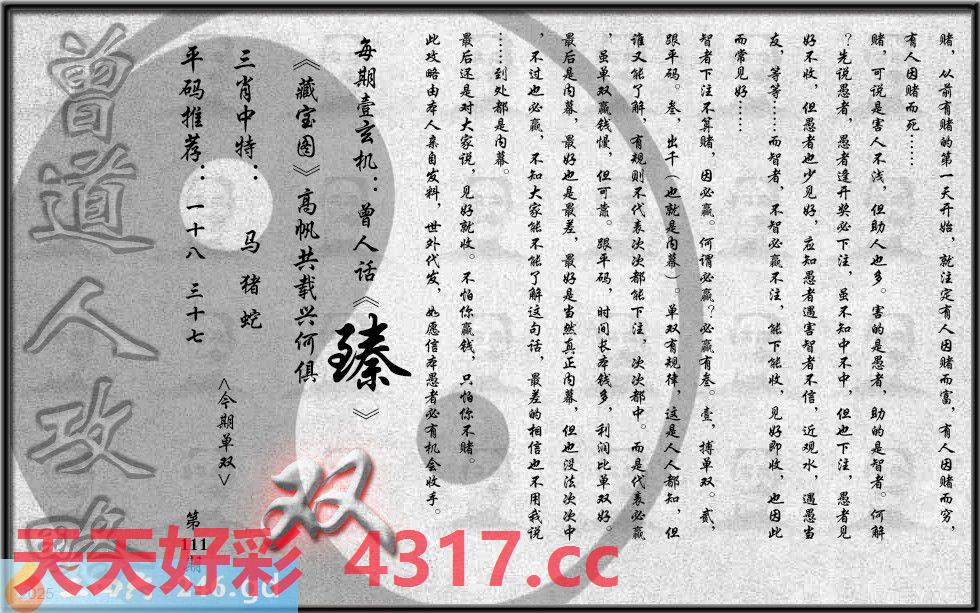 赌，从前有赌的第一天开始，就注定有人因赌而富，有人因赌而穷，
有人因赌而死……
赌，可说是害人不浅，但助人也多。害的是愚者，助的是智者。何解
？先说愚者，愚者逢开奖必下注，虽不知中不中，但也下注，愚者见
好不收，但愚者也少见好，应知愚者遇害智者不信，近观水，遇愚当
友，等等……而智者，不智必赢不注，能下能收，见好即收，也因此
而常见好……
智者下注不算赌，因必赢。何谓必赢？必赢有叁。壹，搏单双。贰，
跟平码。叁，出千（也就是内幕）。单双有规律，这是人人都知，但
谁又能了解，有规则不代表次次都能下注，次次都中。而是代表必赢
，虽单双赢钱慢，但可靠。跟平码，时间长本钱多，利润比单双好。
最后是内幕，最好也是最差，最好是当然真正内幕，但也没法次次中
，不过也必赢，不知大家能不能了解这句话，最差的相信也不用我说
……到处都是内幕。
最后还是对大家说，见好就收。不怕你赢钱，只怕你不赌。
此攻略由本人亲自发料，世外代发，如愿信本愚者必有机会收手。
每期壹玄机：曾人话《臻》
《藏宝图》高帆共载兴何俱
三肖中特：马 猪 蛇
平码推荐：一十八 三十七
<今期单双>
双
第
111
期
曾道人攻略
天天好彩 4317.cc
2025